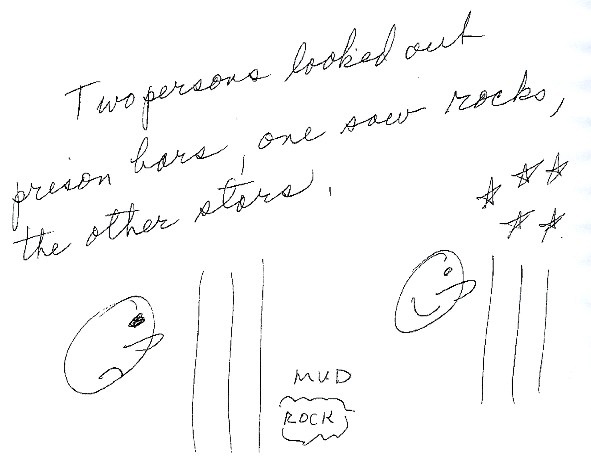 Two persons looked out
prison bars, one saw rocks,
the other stars.
MUD
ROCK